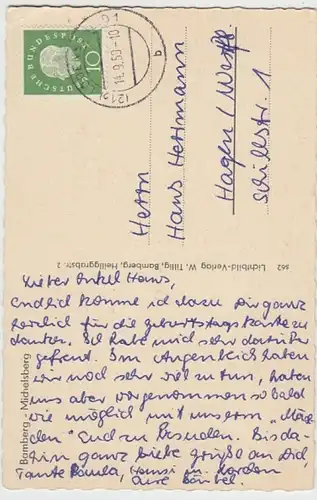 DEUTSCHE BUNDESPOST
10
14.9.59-10
b
Herrn
Hans Hettmann
Hagen / Westf.
Schillstr. 1
562 Lichtbild-Verlag W. Tillig, Bamberg, Heiliggrabstr. 2
Bamberg - Michelsberg
Lieber Onkel Hans,
Endlich komme ich dazu Dir ganz
herzlich für die Geburtstagskarte zu
danken. Ich habe mich sehr darüber
gefreut. Im Augenblick haben
wir noch sehr viel zu tun, haben
uns aber vorgenommen so bald
wie möglich mit unserm "Mäd
chen" Euch zu besuchen. Bis da-
hin ganz liebe Grüße an Dich,
Tante Paula, Hansi
Eure Bärbel.